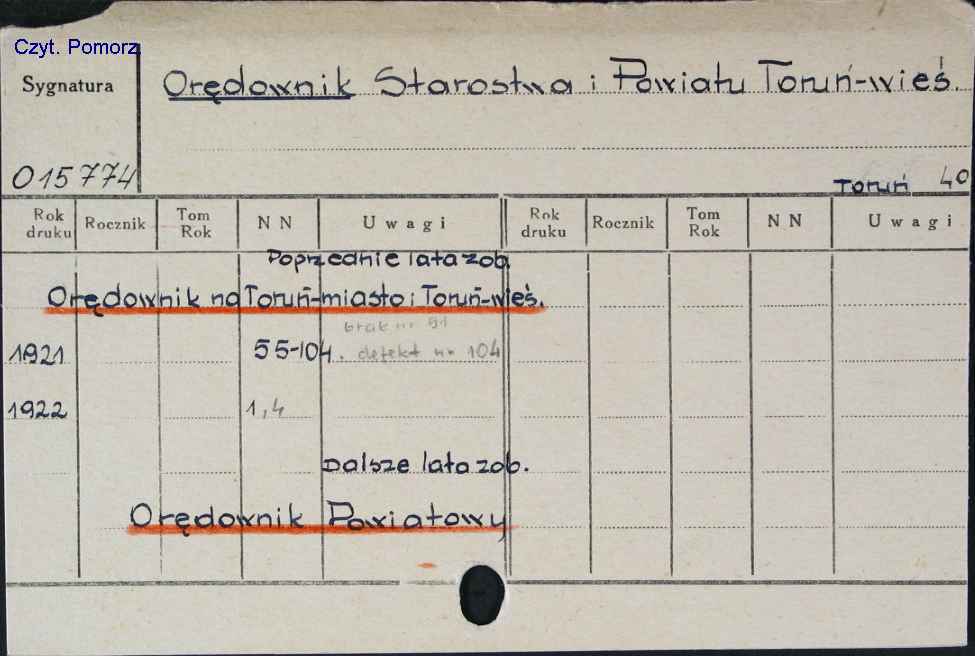 Czyt. Pomorz.
Sygnatura
Orędownik Starostwa i Powiatu Toruń-wieś.
015774
Toruń 40
Rok druku Rocznik Tom Rok NN Uwagi Rok druku Rocznik Tom Rok NN Uwagi
Poprzednie lata zob.
Orędownik na Toruń-miasto i Toruń-wieś.
brak nr 91
1921 55-104. defekt nr 104
1922 1,4
Dalsze lata zob.
Orędownik Powiatowy